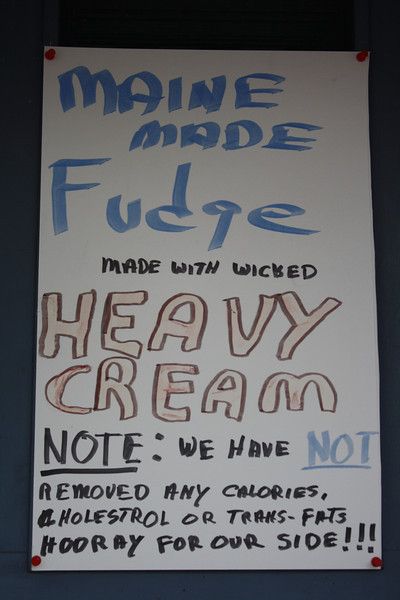 MAINE
MADE
Fudge
MADE WITH WICKED
HEAVY
CREAM
NOTE: WE HAVE NOT
REMOVED ANY CALORIES,
CHOLESTROL OR TRANS-FATS
HOORAY FOR OUR SIDE!!!